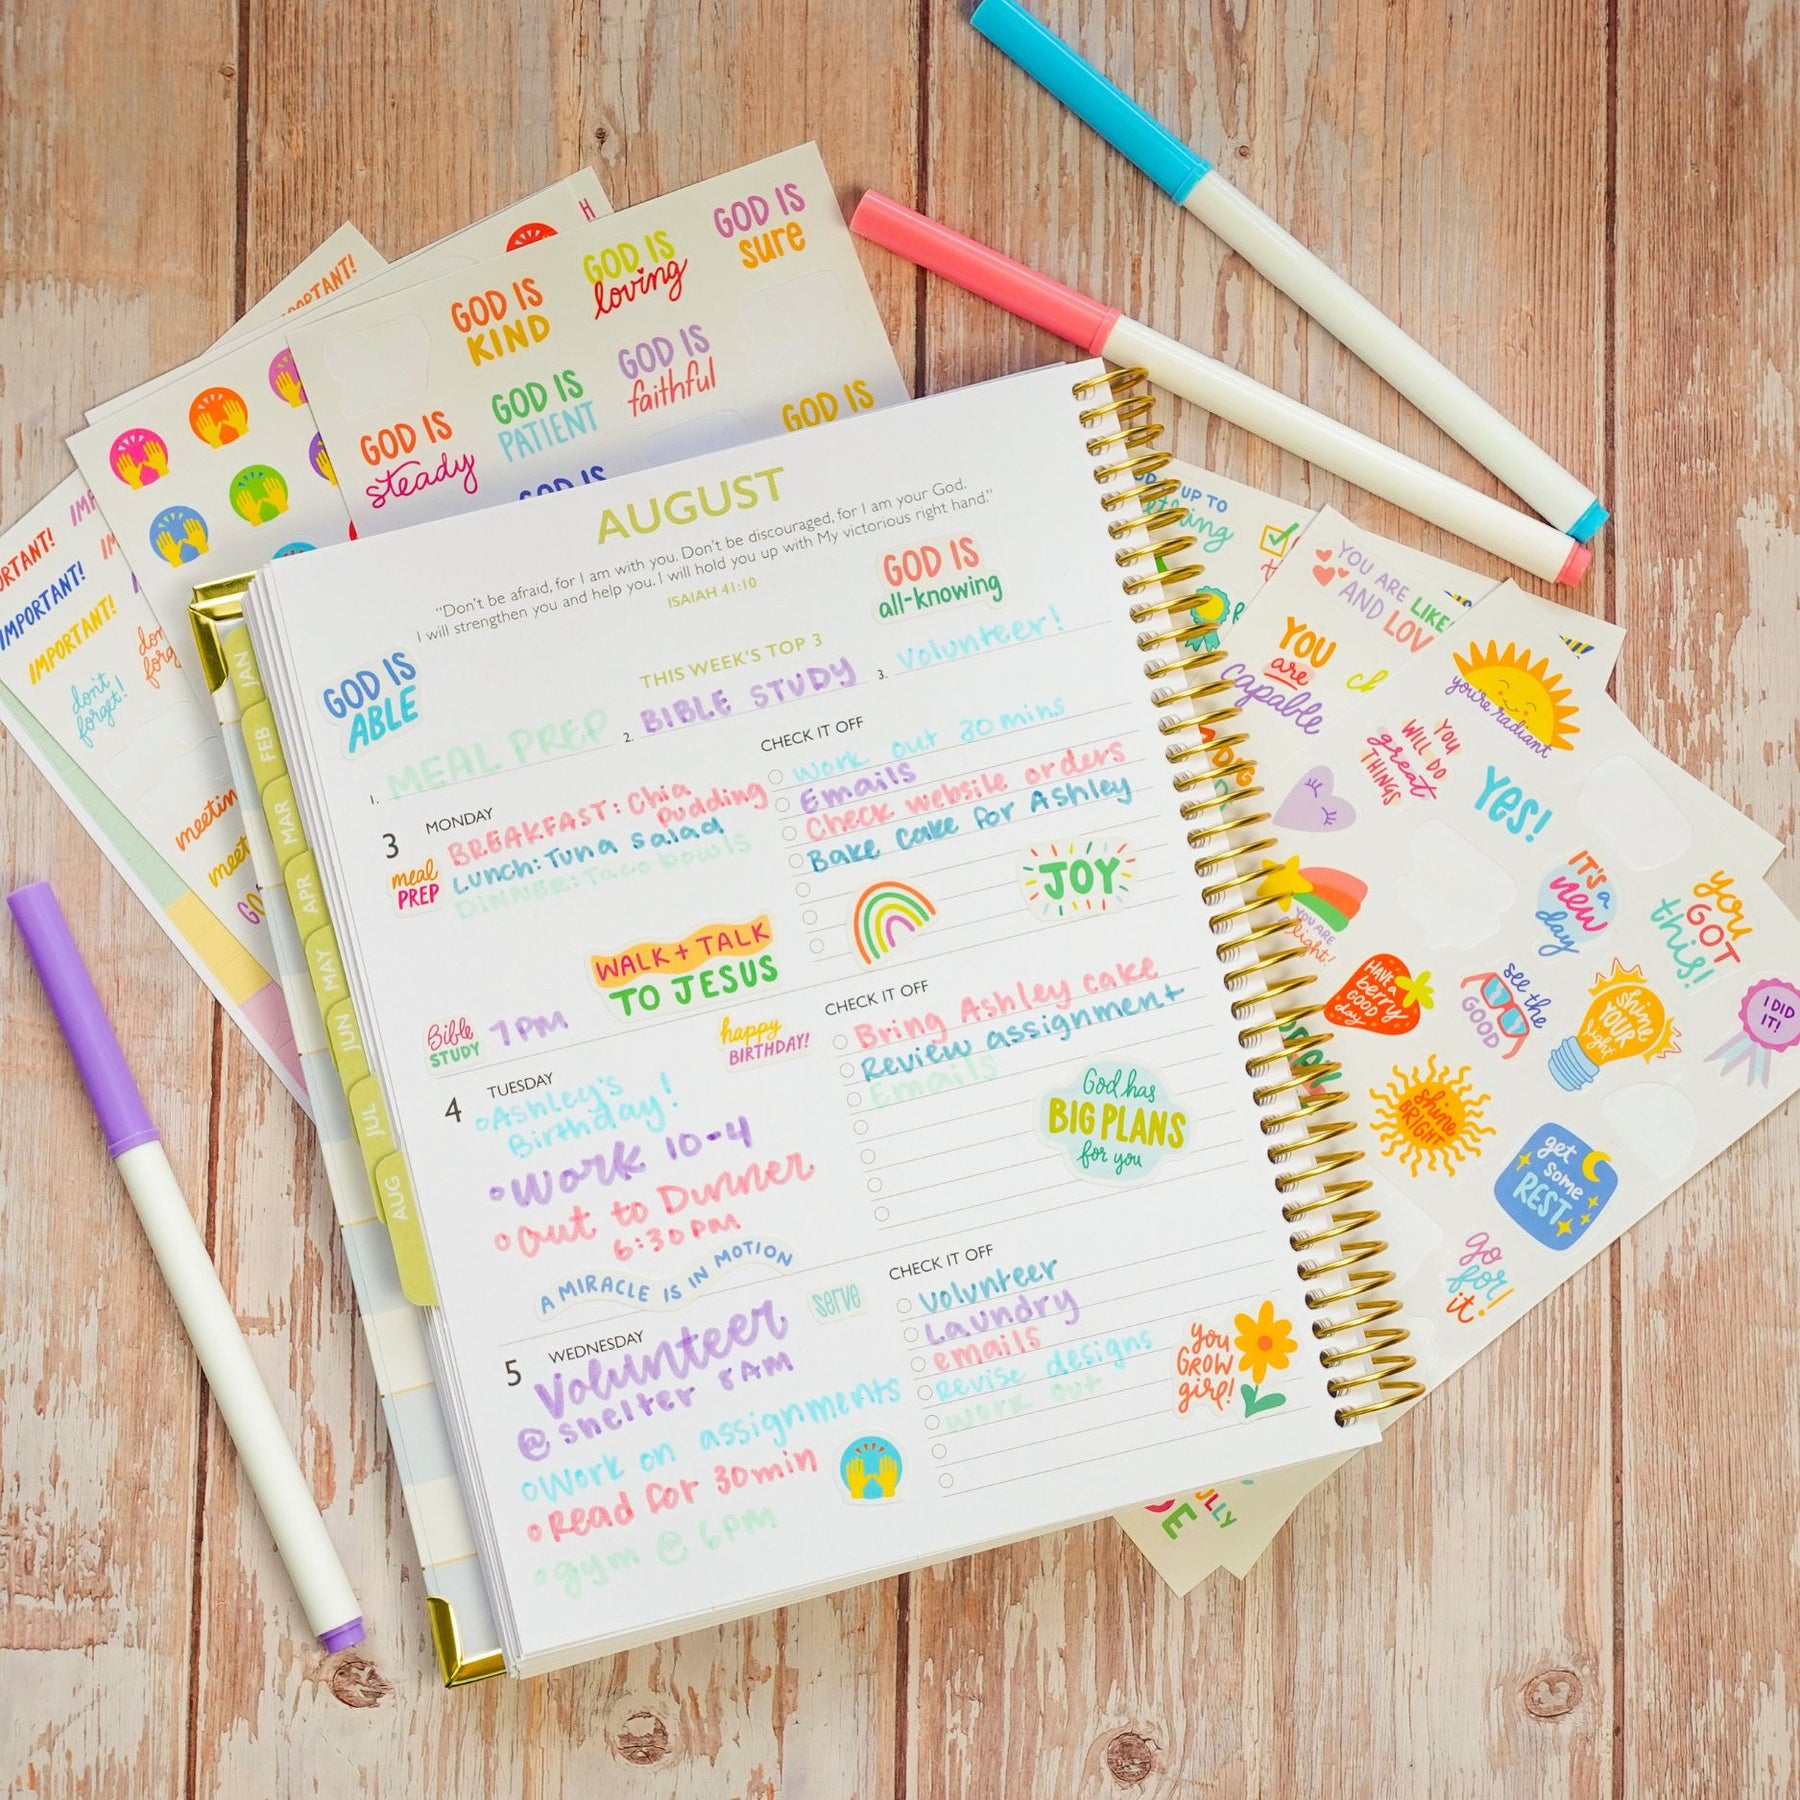 IMPORTANT!
H
GOD IS
sure
GOD IS
loving
GOD IS
KIND
GOD IS
faithful
GOD IS
PATIENT
GOD IS
steady
GOD IS
GOD IS
IMPORTANT!
IMPORTANT!
don't
forget!
meeting
AUGUST
"Don't be afraid, for I am with you. Don't be discouraged, for I am your God.
I will strengthen you and help you. I will hold you up with My victorious right hand."
ISAIAH 41:10
GOD IS
all-knowing
GOD IS
ABLE
THIS WEEK'S TOP 3
1. MEAL PREP
2. BIBLE STUDY
3. Volunteer!
3 MONDAY
BREAKFAST: Chia
Pudding
Lunch: Tuna salad
DINNER: Taco bowls
meal
PREP
WALK + TALK
TO JESUS
Bible
STUDY
7PM
happy
BIRTHDAY!
CHECK IT OFF
Work out 30 mins
Emails
Check website orders
Bake Cake for Ashley
JOY
4 TUESDAY
Ashley's
Birthday!
Work 10-4
Out to Dinner
6:30PM
A MIRACLE IS IN MOTION
CHECK IT OFF
Bring Ashley cake
Review assignment
Emails
God has
BIG PLANS
for you
5 WEDNESDAY
serve
Volunteer
@ shelter 8AM
Work on assignments
Read for 30min
gym @ 6PM
CHECK IT OFF
Volunteer
Laundry
emails
Revise designs
Work out
you
GROW
girl!
JAN
FEB
MAR
APR
MAY
JUN
JUL
AUG
UP TO
YOU ARE LIKE
AND LOV
YOU
are
capable
you're radiant
YOU
WILL DO
great
THINGS
YES!
IT'S a
new
day
you
GOT
this!
YOU ARE
HAVE a
berry
GOOD
day
see the
GOOD
shine
YOUR
light
I DID
IT!
shine
BRIGHT
get
some
REST
go
for
it!